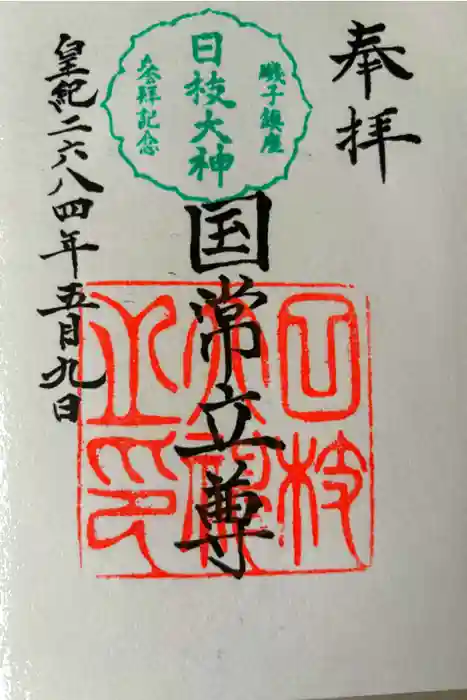 奉拝
磯子鎮座
日枝大神
参拝記念
国常立尊
皇紀二六八四年五月九日
日枝
之印